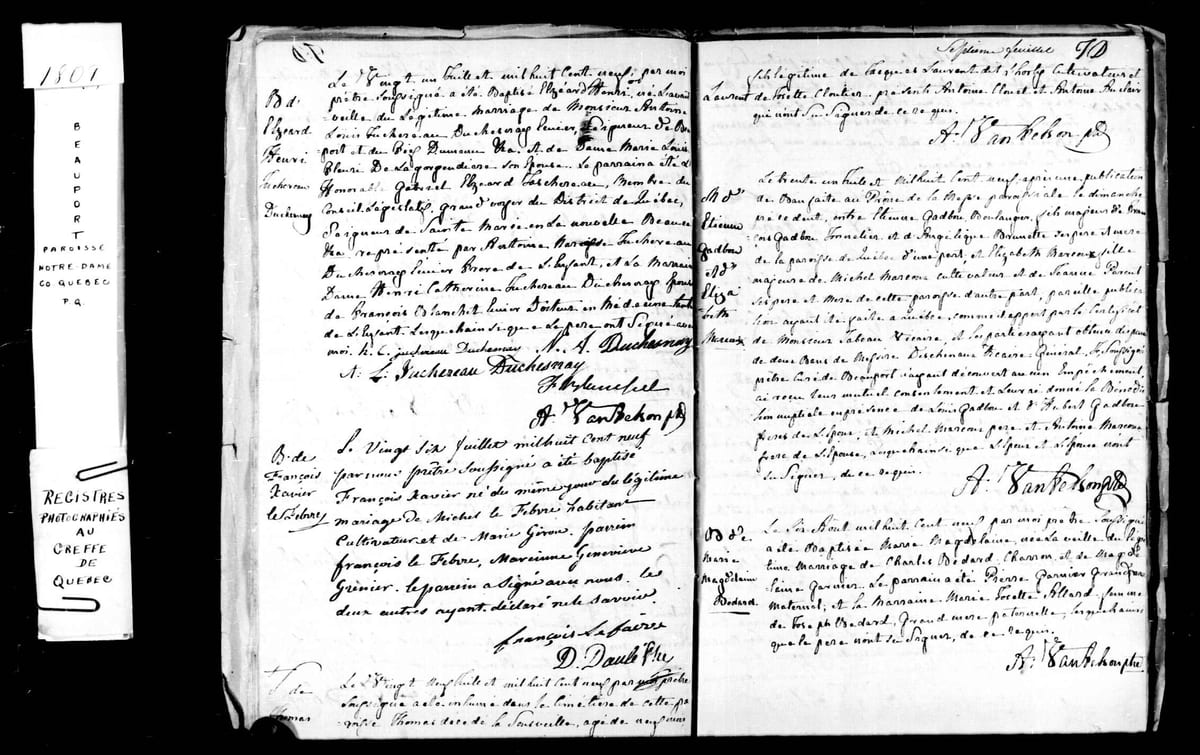 1809
BEAUPORT
PAROISSE
NOTRE-DAME
CO. QUEBEC
P.Q.
REGISTRES
PHOTOGRAPHIÉS
AU
GREFFE
DE
QUEBEC
B d'
Elzeard
Henri
Juchereau
Duchesnay
Le Vingt un Juillet milhuit Cent neuf, par moi
prêtre Soussigné a été Baptisé Elzéard Henri, né L'avant
veille du Légitime Marriage de Monsieur Antoine
Louis Juchereau Duchesnay Ecuier, Seigneur de Beau
port et du Fief &ca. Et de Dame Marie Louise
Fleuri De La gorgendiere Son Epouse. Le parrain a été L'
Honorable Gabriel Elzeard Taschereau, Membre du
Conseil Legislatif, grand voyer du District de Québec,
Seigneur de Sainte Marie en La nouvelle Beauce
&ca. représenté par Antoine Juchereau
Duchesnay Ecuier frere de L'Enfant, et La Marraine
Dame Henri Catherine Juchereau Duchesnay Epouse
de François Blanchet Ecuier Docteur en Médecine
de L'Enfant. Lesquels ainsi que Le pere ont Signé avec
moi. h. C. juchereau Duchesnay N. A. Duchesnay
A: L. Juchereau Duchesnay
F Blanchet
Ar. Van Felson ptr
B. de
François
Xavier
le Febvre
Le Vingt Six Juillet milhuit Cent neuf
par nous prêtre Soussigné a été baptisé
François Xavier né du même jour du légitime
mariage de Michel le Febvre habitant
Cultivateur et de Marie Giroux. parrein
françois le Febvre, Marreinne Genevieve
Grénier. le parrein a Signé avec nous. les
deux autres ayant déclaré ne le Savoir.
françois Lefaivre
D. Daulé Ptre
S de
Thomas
Le Vingt Neuf Juillet milhuit Cent neuf par prêtre
Soussigné a été inhumé dans le Cimetiere de cette pa
roisse Thomas decedé la Surveille, agé de neuf mois
Septieme feuillet
fils légitime de Jacques Laurent dit Lhortie Cultivateur et
Laurent de Josette Cloutier, présents Antoine Clouet et Antoine Auclair
qui n'ont Su Signer de ce requis.
Ar. Van Felson ptr
M d'
Etienne
Gadbou
& d'
Eliza
beth
Marcoux
Le trente un Juillet Milhuit Cent neuf, après une publication
de Ban faite au Prone de la Messe paroissiale le dimanche
précedent, entre Etienne Gadbou Boulanger, fils majeur d'Fran
çois Gadbou Tonnelier et d'Angélique Brunette Ses pere et mere
de la paroisse de Québec d'une part, et Elizabeth Marcoux fille
majeure de Michel Marcoux cultivateur et de Jeanne Parent
Ses pere et Mere de cette paroisse d'autre part, pareille publica
tion ayant été faite a Québec, comme il appert par le Certificat
de Monsieur Tabeau Vicaire, et les parties ayant obtenu dispense
de deux Bans de Messire Deschenaux Vicaire-Général, Je Soussigné
prêtre Curé de Beauport n'ayant découvert aucun Empêchement,
ai reçu leur mutuel consentement et leur ai donné la Bénédic
tion nuptiale en présence de Louis Gadbou et d'Hubert Gadbou
freres de L'Epoux, et Michel Marcoux pere et Antoine Marcoux
frere de L'Epouse, lesquels ainsi que L'Epoux et L'Epouse n'ont
Su Signer, de ce requis.
Ar. Van Felson ptr
B d'e
Marie
Magdelaine
Bedard.
Le Six Aout milhuit Cent neuf par moi pretre Soussigné
a été Baptisée Marie Magdelaine, née La veille du Légi
time Marriage de Charles Bedard, Charron, et de Magde
leine Garnier. Le parrain a été Pierre Garnier grand pere
maternel, et La Marraine Marie Josette Allard, femme
de Joseph Bedard, Grand mere paternelle, lesquels ainsi
que le pere n'ont Su Signer, de ce requis.
Ar. Van Felson ptre